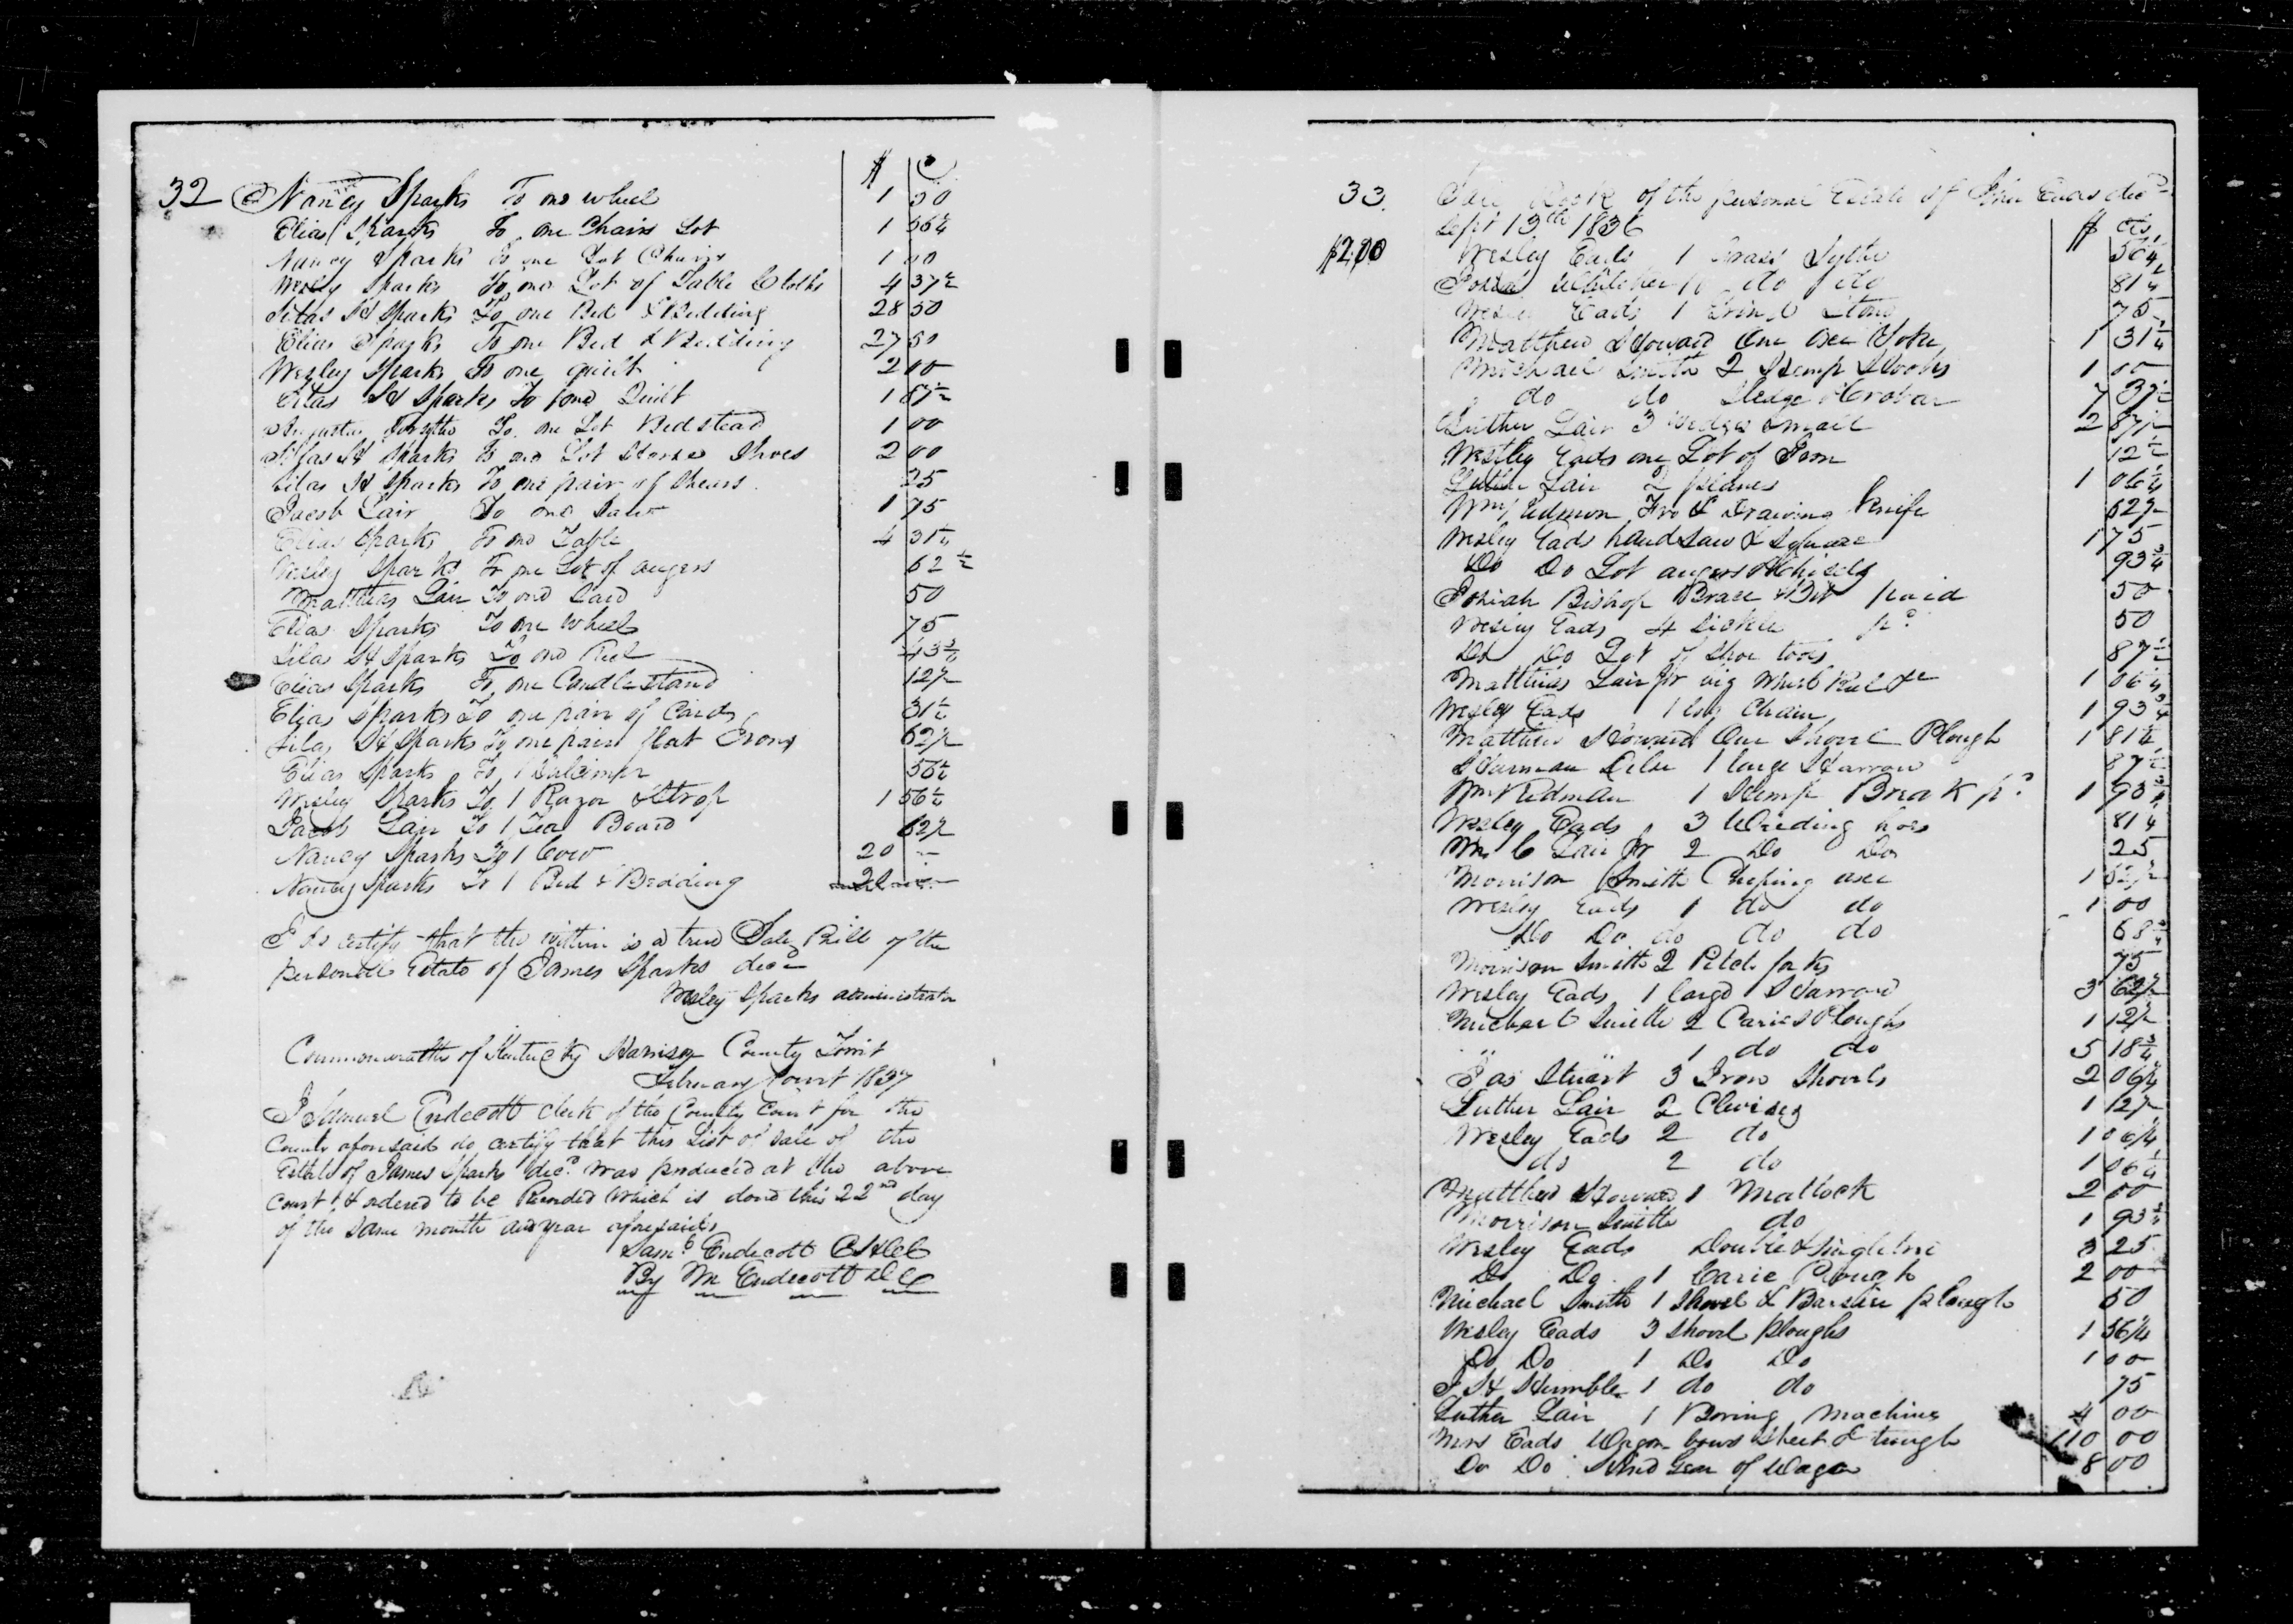 32
$ C
Nancy Sparks To one wheel 1 50
Elias Sparks To one Chairs Lot 1 56¼
Nancy Sparks To one Lot Chairs 1 00
Wesly Sparks To one Lot of Table Cloths 4 37½
Silas H Sparks To one Bed & Bedding 28 50
Elias Sparks To one Bed & Bedding 27 50
Wesley Sparks To one quilt 2 00
Silas H Sparks To one Quilt 1 87½
Forsythe To one Lot Bedstead 1 00
Silas H Sparks To one Lot Horse Shoes 2 00
Silas H Sparks To one pair of Shears 25
Jacob Lair To one Saw 1 75
Elias Sparks To one Table 4 31¼
Wesley Sparks To one Lot of augers 62½
Matthias Lair To one 50
Elias Sparks To one wheel 75
Silas H Sparks To one Reel 43¾
Elias Sparks To one Candlestand 12½
Elias Sparks To one pair of Cards 31¼
Silas H Sparks To one pair flat Irons 62½
Elias Sparks To 1 56¼
Wesley Sparks To 1 Razor & Strop 1 56¼
Jacob Lair To 1 Tea Board 62½
Nancy Sparks To 1 Cow 20
Nancy Sparks To 1 Bed & Bedding 20
I do certify that the within is a true Sale Bill of the
personall Estate of James Sparks decd
Wesley Sparks administrator
Commonwealth of Kentucky Harrison County Towit
February Court 1837
I Samuel Endecott clerk of the County Court for the
County aforesaid do certify that this List of Sale of the
Estate of James Sparks decd was produced at the above
Court & ordered to be Recorded which is done this 22nd day
of the same month and year aforesaid
Saml Endecott CHCC
By M Endecott DC
33. Sale Book of the personal Estate of John Eads decd
Sept 13th 1836 $ cts
$2.00 Wesley Eads 1 Grass Sythe 56¼
do do 81¼
Wesley Eads 1 Grind Stone 75
Matthew Howard One oxe Yoke 1 31¼
Michael Smith 2 Hemp Hooks 1 00
do do Sledge & Crobar 7 37½
Luther Lair 3 wedges small 2 87½
Westley Eads one Lot of Iron 12½
Luther Lair 2 planes 1 06¼
Wm Fro & Drawing Knife 62½
Wesley Eads hand saw & Square 1 75
Do Do Lot augers & Chisels 93¾
Josiah Bishop Brace & Bit paid 50
Wesley Eads 4 Sickles pd 50
Do Do Lot of Shoe tools 87½
Matthias Lair Jr big Wheel Reel &c 1 06¼
Wesley Eads 1 log Chain 1 93¾
Matthew Howard One Shovel Plough 1 81¼
1 large Harrow 87½
Wm Redman 1 Hemp Break pd 1 93¾
Wesley Eads 3 Weeding hoes 81¼
Wm C Lair Jr 2 Do Do 25
Morrison Smith Choping axe 1 62½
Wesley Eads 1 do do 1 00
Do Do do do do 68¾
Morrison Smith 2 Pitch forks 75
Wesley Eads 1 large Harrow 3 62½
Michael Smith 2 Carie Ploughs 1 12½
" " 1 do do 5 18¾
Jas Stuart 3 Iron Shovels 2 06¼
Luther Lair 2 Clevises 1 12½
Wesley Eads 2 do 1 06¼
do 2 do 1 06¼
Matthew Howard 1 Mattock 2 00
Morrison Smith do 1 93¾
Wesley Eads Double & Singletree 3 25
Do Do 1 Carie Plough 2 00
Michael Smith 1 Shovel & Barshire plough 50
Wesley Eads 3 Shovel ploughs 1 56¼
Do Do 1 Do Do 1 00
J H Humble 1 do do 75
Luther Lair 1 Boring Machine 4 00
Mrs Eads Wagon bows Sheet & trough 110 00
Do Do Hind Gear of Wagon 8 00